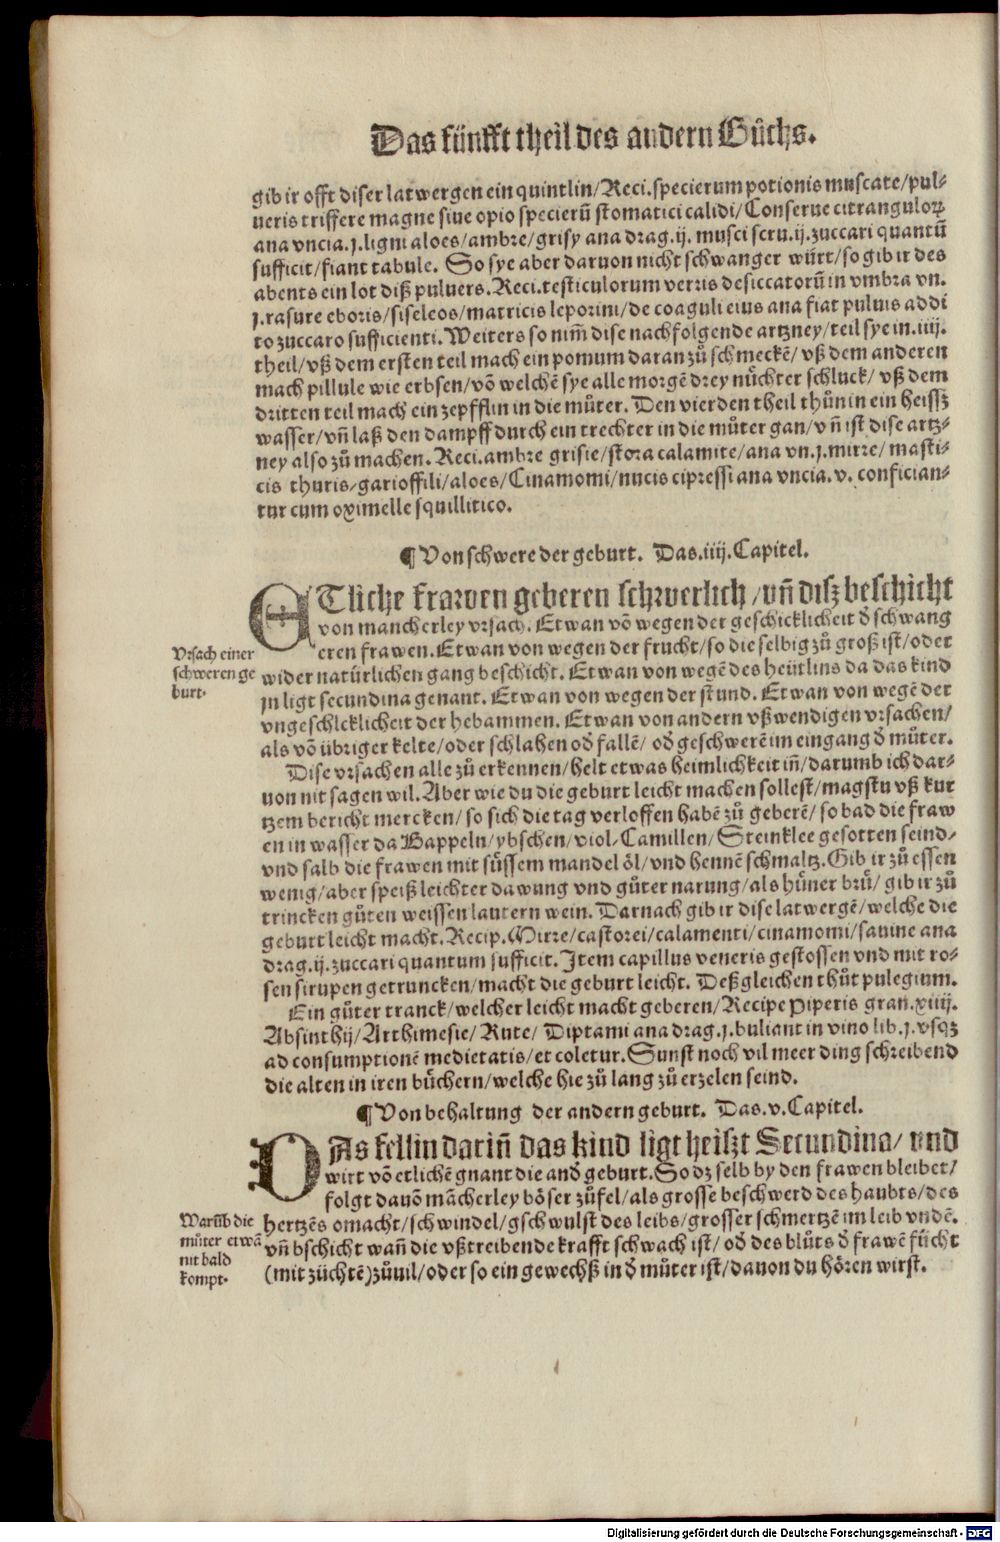 Das fünfft theil des andern Bůchs.
gib ir offt diser latwergen ein quintlin/Reci.specierum potionis muscate/pul-
ueris triffere magne siue opio specierū stomatici calidi/Conserue citranguloꝝ
ana vncia.j.ligni aloes/ambre/grisy ana drag.ij. musci scru.ij.zuccari quantū
sufficit/fiant tabule. So sye aber daruon nicht schwanger würt/so gib ir des
abents ein lot diß puluers.Reci.testiculorum verris desiccatorū in vmbra vn.
j.rasure eboris/siseleos/matricis leporini/de coaguli eius ana fiat puluis addi
to zuccaro sufficienti.Weiters so nim̄ dise nachfolgende artzney/teil sye in.iiij.
theil/vß dem ersten teil mach ein pomum daran zů schmeckē/vß dem anderen
mach pillule wie erbsen/vō welchē sye alle morgē drey nüchter schluck/ vß dem
dritten teil mach ein zepfflin in die můter. Den vierden theil thůn in ein heissz
wasser/vn̄ laß den dampff durch ein trechter in die můter gan/vn̄ ist dise artz-
ney also zů machen.Reci.ambre grisie/stora calamite/ana vn.j.mirre/masti-
cis thuris-garioffili/aloes/Cinamomi/nucis cipressi ana vncia.v. confician-
tur cum oximelle squillitico.
¶Von schwere der geburt. Das.iiij.Capitel.
ETliche frawen geberen schwerlich/vn̄ disz beschicht
von mancherley vrsach. Etwan vō wegen der geschicklicheit d̄ schwang
eren frawen.Etwan von wegen der frucht/so die selbig zů groß ist/oder
Vrsach einer
schweren ge
burt.
wider natürlichen gang beschicht. Etwan von wegē des heütlins da das kind
jn ligt secundina genant. Etwan von wegen der stund. Etwan von wegē der
vngeschlcklicheit der hebammen. Etwan von andern vßwendigen vrsachen/
als vō übriger kelte/oder schlahen od̄ fallē/ od̄ geschwerē im eingang d̄ můter.
Dise vrsachen alle zů erkennen/helt etwas heimlichkeit in̄/darumb ich dar-
uon nit sagen wil.Aber wie du die geburt leicht machen sollest/magstu vß kur
tzem bericht mercken/so sich die tag verloffen habē zů geberē/so bad die fraw
en in wasser da Bappeln/ybschen/viol-Camillen/Steinklee gesotten seind-
vnd salb die frawen mit süssem mandel öl/vnd hennē schmaltz.Gib ir zů essen
wenig/aber speiß leichter dawung vnd gůter narung/als hůner brů/gib ir zů
trincken gůten weissen lautern wein. Darnach gib ir dise latwergē/welche die
geburt leicht macht.Recip.Mirre/castorei/calamenti/cinamomi/sauine ana
drag.ij.zuccari quantum sufficit.Item capillus veneris gestossen vnd mit ro-
sen sirupen getruncken/macht die geburt leicht. Deßgleichen thůt pulegium.
Ein gůter tranck/welcher leicht macht geberen/Recipe Piperis gran.xiiij.
Absinthij/Arthimesie/Rute/ Diptami ana drag.j.buliant in vino lib.j.vsqz
ad consumptionē medietatis/et coletur.Sunst noch vil meer ding schreibend
die alten in iren bůchern/welche hie zů lang zů erzelen seind.
¶Von behaltung der andern geburt. Das.v.Capitel.
DAs fellin darin̄ das kind ligt heiszt Secundina/ vnd
wirt vō etlichē gnant die and̄ geburt.So dz selb by den frawen bleibet/
folgt dauō mācherley böser zůfel/als grosse beschwerd des haubts/des
Warūb die
můter etwā
nit bald
kompt.
hertzēs omacht/schwindel/gschwulst des leibs/grosser schmertzē im leib vndē.
vn̄ bschicht wan̄ die vßtreibende krafft schwach ist/ od̄ des blůts d̄ frawē fücht
(mit züchtē)zůuil/oder so ein gewechß in d̄ můter ist/dauon du hören wirst.
Digitalisierung gefördert durch die Deutsche Forschungsgemeinschaft - DFG